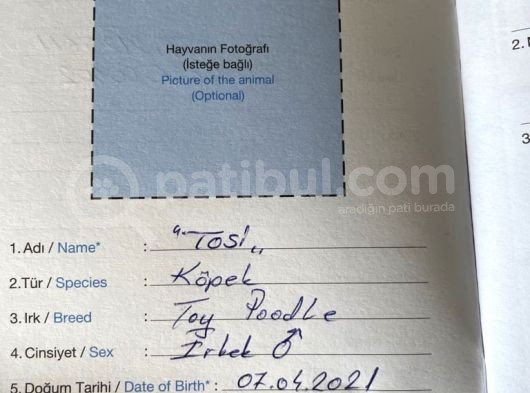 Hayvanın Fotoğrafı
(İsteğe bağlı)
Picture of the animal
(Optional)
patibul.com
aradığın pati burada
1. Adı / Name* : "Tosi"
2.Tür / Species : Köpek
3. Irk / Breed : Toy Poodle
4. Cinsiyet / Sex : Erkek ♂
5. Doğum Tarihi / Date of Birth* : 07.04.2021
2.
3